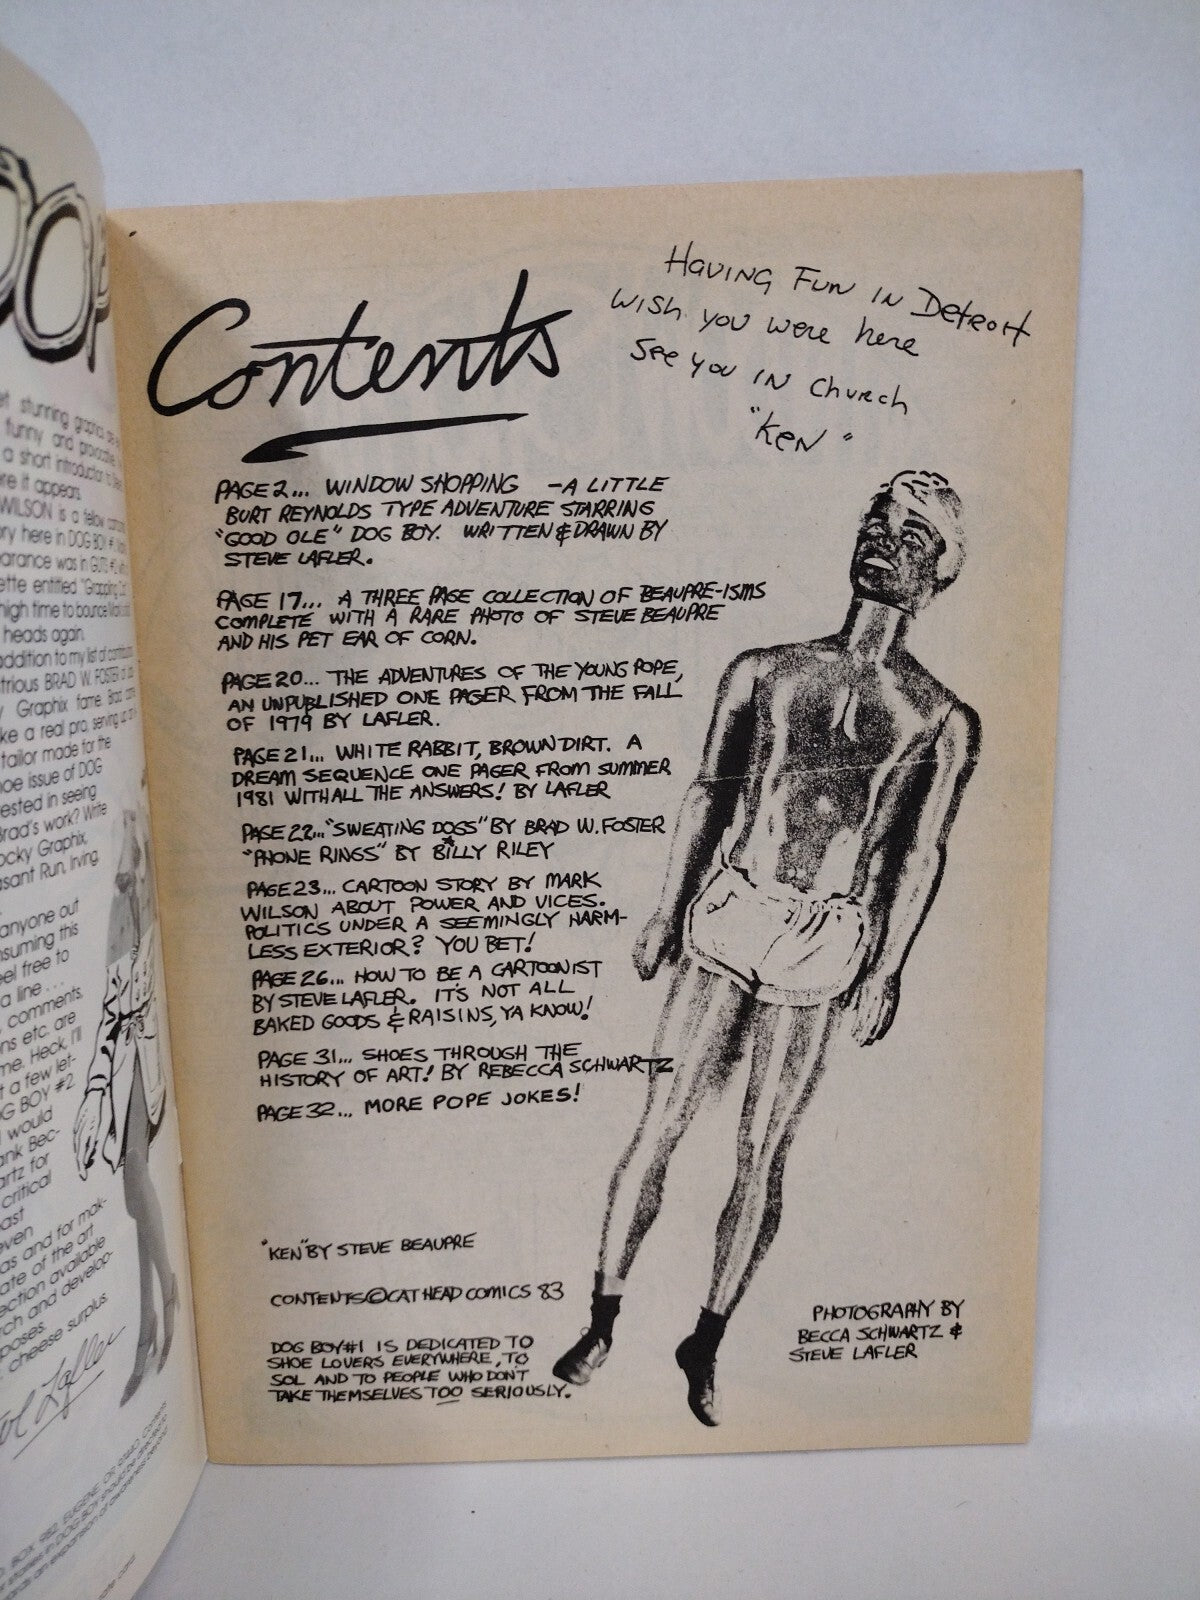 et stunning
funny and provocative
a short introduction to
ere it appears
WILSON is a fellow
ory here in DOG BOY #
earance was in GUTS #
ette entitled "Grapping
high time to bounce Mark
heads again.
addition to my list of
trious BRAD W. FOSTER of
Graphix fame. Brad
ke a real pro, serving up
tailor made for the
hoe issue of DOG
rested in seeing
Brad's work? Write
ocky Graphix,
asant Run, Irving,
anyone out
nsuming this
eel free to
a line...
, comments,
ns etc. are
me. Heck, I'll
t a few let-
OG BOY #2
I would
ank Bec-
artz for
critical
ast
even
as and for mak-
ate of the art
ection available
rch and develop-
poses.
cheese surplus.
Lafler
BOX 982, EUGENE, OR 97440
Contents
Having Fun in Detroit
Wish you were here
See you in Church
"Ken"
PAGE 2... WINDOW SHOPPING - A LITTLE
BURT REYNOLDS TYPE ADVENTURE STARRING
"GOOD OLE" DOG BOY. WRITTEN & DRAWN BY
STEVE LAFLER.
PAGE 17... A THREE PAGE COLLECTION OF BEAUPRE-ISMS
COMPLETE WITH A RARE PHOTO OF STEVE BEAUPRE
AND HIS PET EAR OF CORN.
PAGE 20... THE ADVENTURES OF THE YOUNG POPE,
AN UNPUBLISHED ONE PAGER FROM THE FALL
OF 1979 BY LAFLER.
PAGE 21... WHITE RABBIT, BROWN DIRT. A
DREAM SEQUENCE ONE PAGER FROM SUMMER
1981 WITH ALL THE ANSWERS! BY LAFLER
PAGE 22... "SWEATING DOGS" BY BRAD W. FOSTER
"PHONE RINGS" BY BILLY RILEY
PAGE 23... CARTOON STORY BY MARK
WILSON ABOUT POWER AND VICES.
POLITICS UNDER A SEEMINGLY HARM-
LESS EXTERIOR? YOU BET!
PAGE 26... HOW TO BE A CARTOONIST
BY STEVE LAFLER. IT'S NOT ALL
BAKED GOODS & RAISINS, YA KNOW!
PAGE 31... SHOES THROUGH THE
HISTORY OF ART! BY REBECCA SCHWARTZ
PAGE 32... MORE POPE JOKES!
"KEN" BY STEVE BEAUPRE
CONTENTS © CAT HEAD COMICS 83
DOG BOY #1 IS DEDICATED TO
SHOE LOVERS EVERYWHERE, TO
SOL AND TO PEOPLE WHO DON'T
TAKE THEMSELVES TOO SERIOUSLY.
PHOTOGRAPHY BY
BECCA SCHWARTZ &
STEVE LAFLER